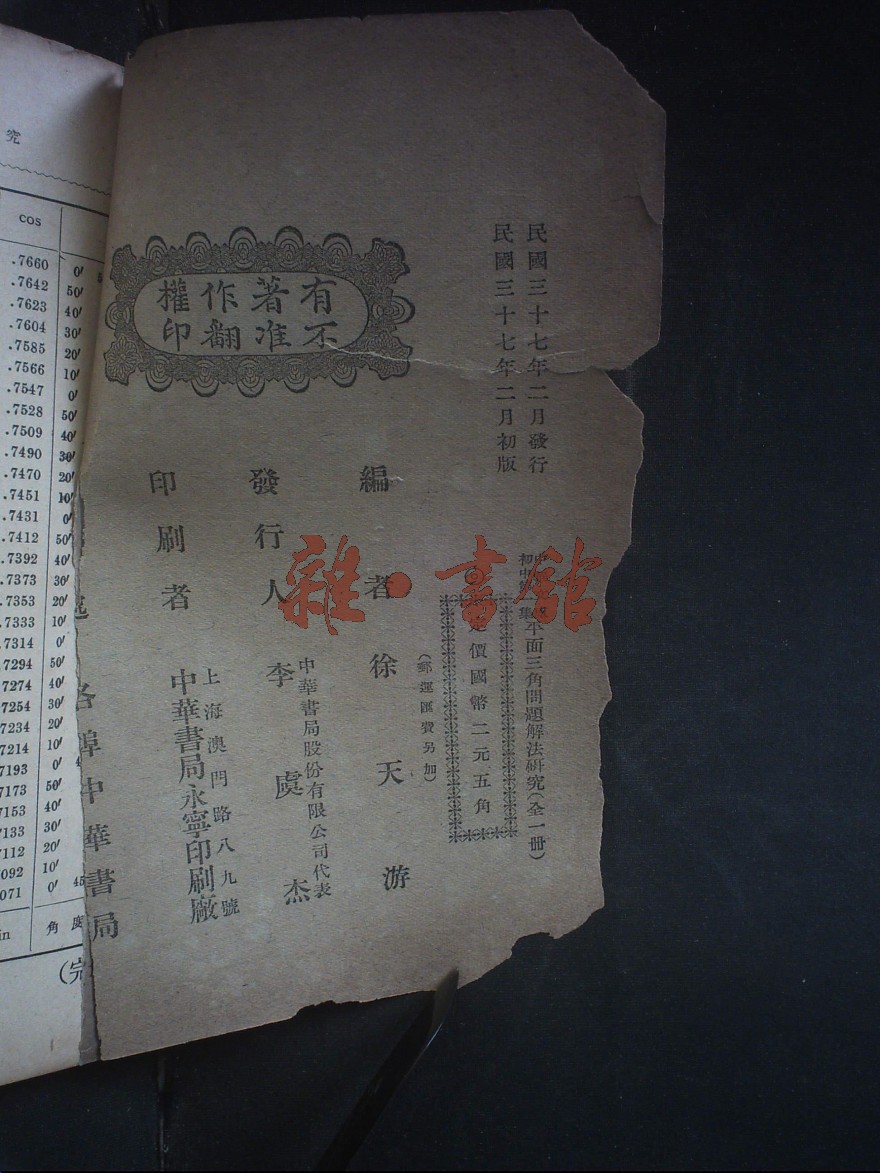 民國三十七年二月發行
民國三十七年二月初版
初中 平面三角問題解法研究(全一冊)
定價國幣二元五角
(郵運匯費另加)
編者 徐天游
中華書局股份有限公司代表
發行人 李虞杰
上海澳門路八九號
印刷者 中華書局永寧印刷廠
各埠中華書局
有著作權
不准翻印
雜·書館
究
cos
.7660 0′
.7642 50′
.7623 40′
.7604 30′
.7585 20′
.7566 10′
.7547 0′
.7528 50′
.7509 40′
.7490 30′
.7470 20′
.7451 10′
.7431 0′
.7412 50′
.7392 40′
.7373 30′
.7353 20′
.7333 10′
.7314 0′
.7294 50′
.7274 40′
.7254 30′
.7234 20′
.7214 10′
.7193 0′
.7173 50′
.7153 40′
.7133 30′
.7112 20′
.7092 10′
.7071 0′ 45
in 角度
(完